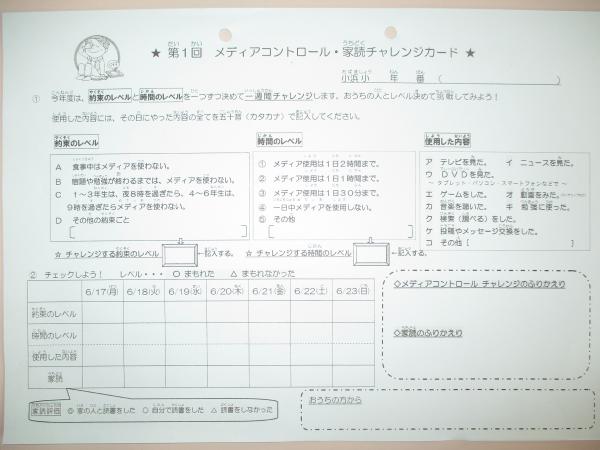 ★ 第1回 メディアコントロール・家読チャレンジカード ★
小浜小 年 番 ( )
① 今年度は、約束のレベルと時間のレベルを一つずつ決めて一週間チャレンジします。おうちの人とレベル決めて挑戦してみよう！
使用した内容には、その日にやった内容の全てを五十音（カタカナ）で記入してください。
約束のレベル
A 食事中はメディアを使わない。
B 宿題や勉強が終わるまでは、メディアを使わない。
C 1～3年生は、夜8時を過ぎたら、4～6年生は、
9時を過ぎたらメディアを使わない。
D その他の約束ごと
[ ]
時間のレベル
① メディア使用は1日2時間まで。
② メディア使用は1日1時間まで。
③ メディア使用は1日30分まで。
④ 一日中メディアを使用しない。
⑤ その他
[ ]
使用した内容
ア テレビを見た。 イ ニュースを見た。
ウ DVDを見た。
～ タブレット・パソコン・スマートフォンなどで ～
エ ゲームをした。 オ 動画をみた。
カ 音楽を聴いた。 キ 勉強に使った。
ク 検索（調べる）をした。
ケ 投稿やメッセージ交換をした。
コ その他[ ]
☆ チャレンジする約束のレベル ←記入する。 ☆ チャレンジする時間のレベル ←記入する。
② チェックしよう！ レベル・・・ ○ まもれた △ まもれなかった
6/17(月) 6/18(火) 6/19(水) 6/20(木) 6/21(金) 6/22(土) 6/23(日)
約束のレベル
時間のレベル
使用した内容
家読
家読評価 ◎ 家の人と読書をした ○ 自分で読書をした △ 読書をしなかった
◇メディアコントロール チャレンジのふりかえり
◇家読のふりかえり
おうちの方から